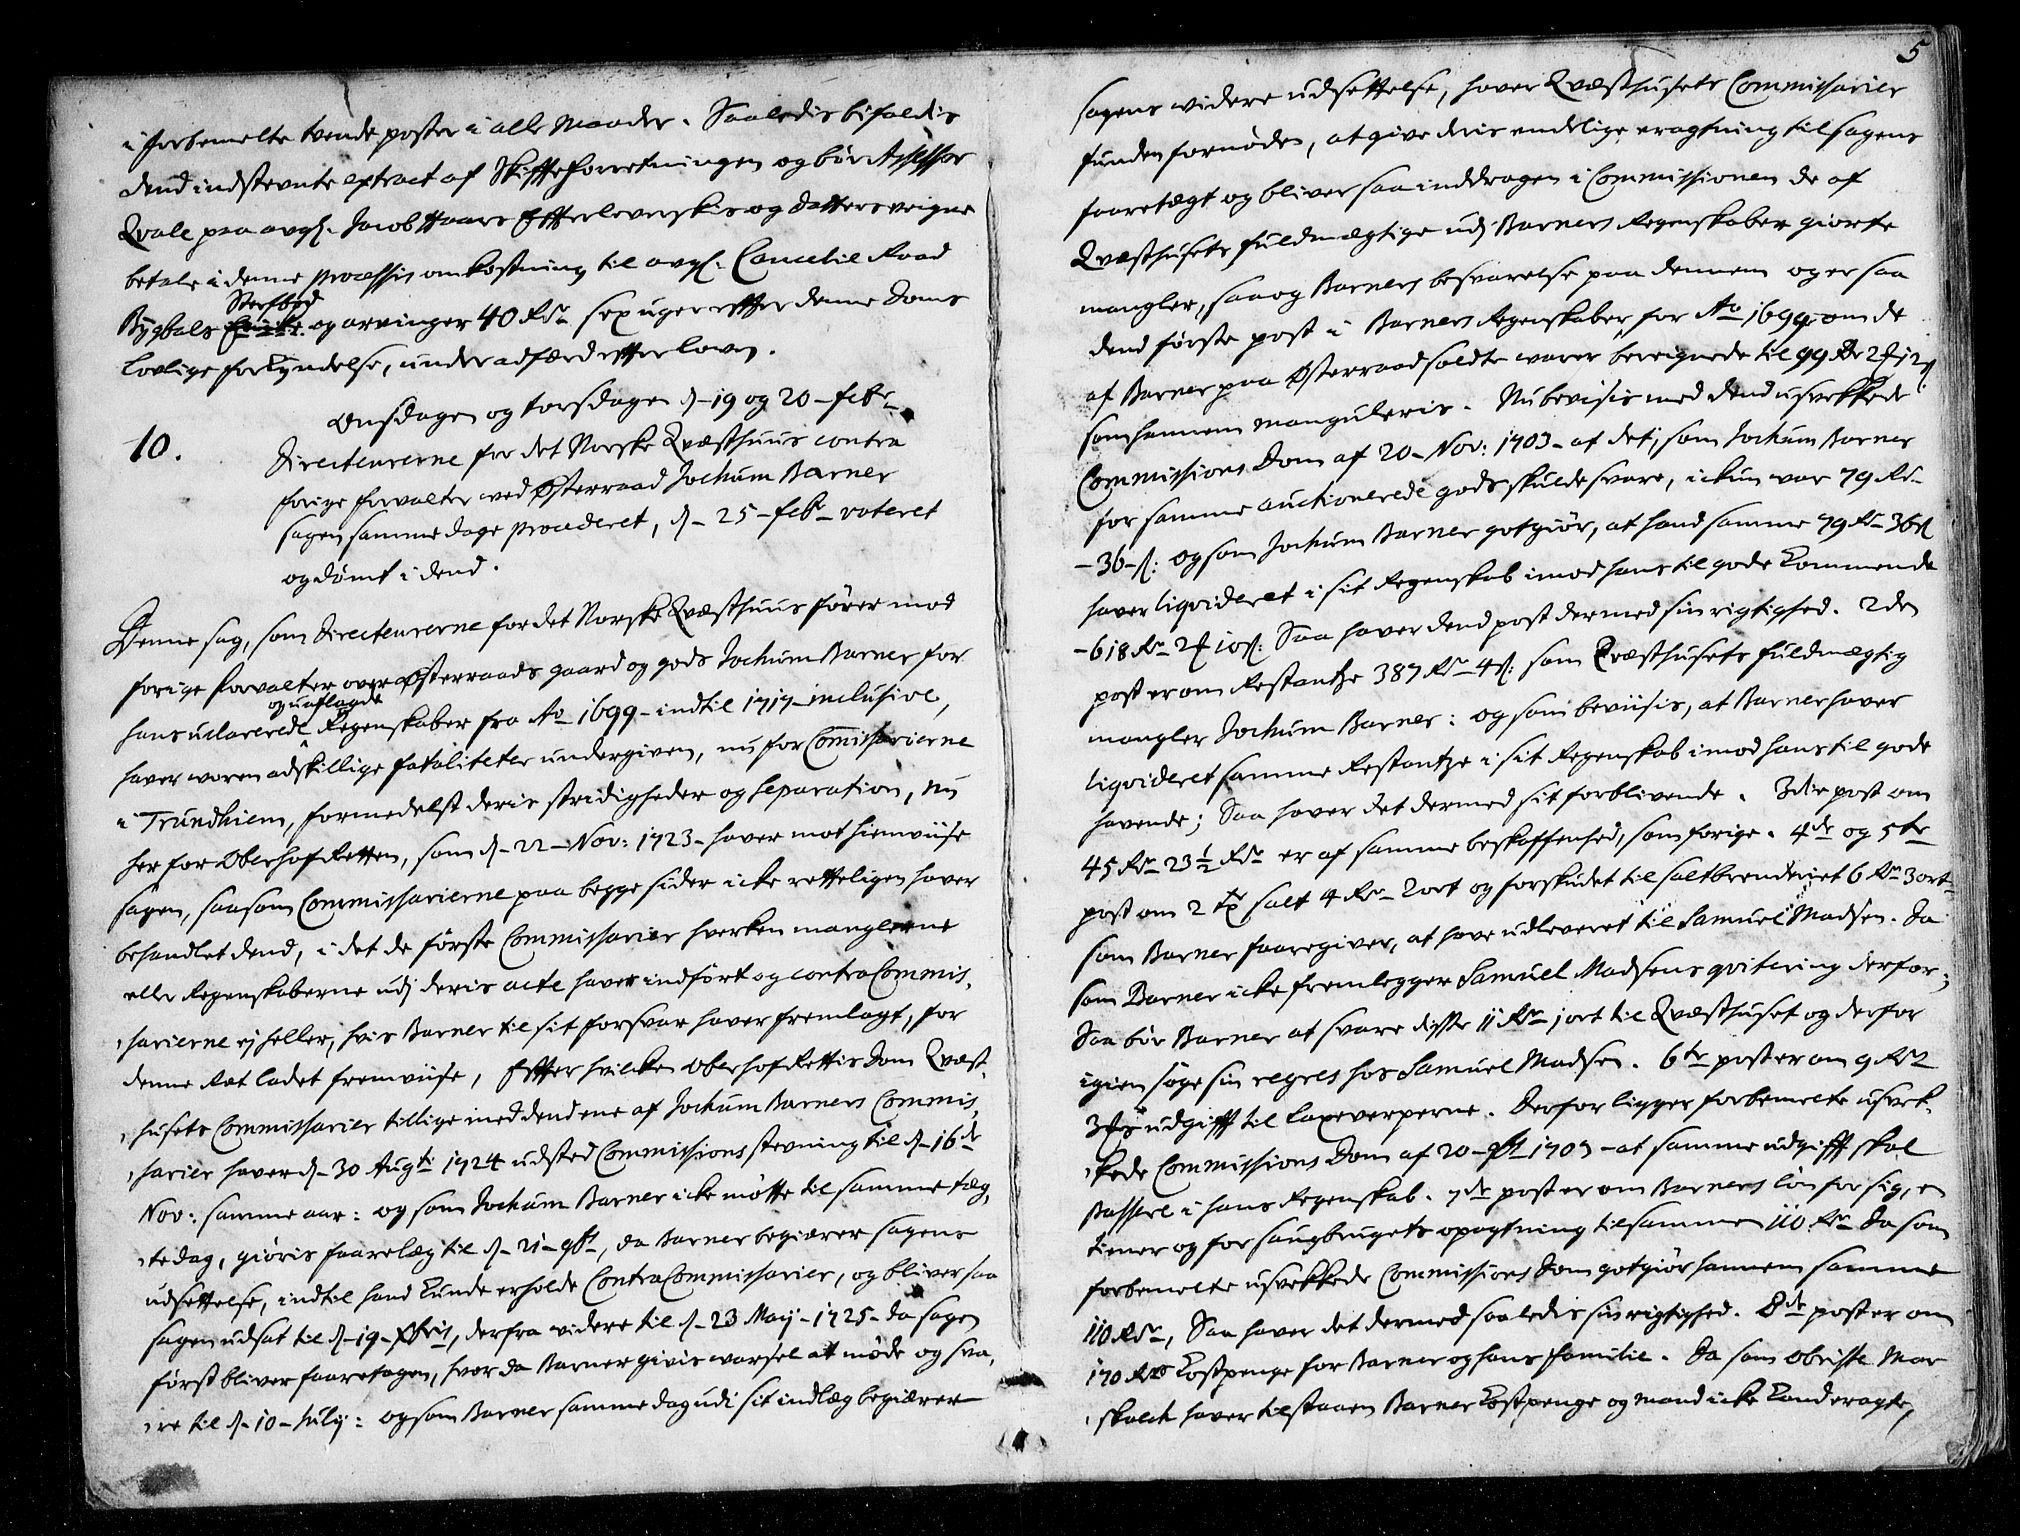 i forbemelte tvende poster i alle maader. Saaledis biholdis
dend indstevnte extract af Skiffteforretningen og bør Assessor
Qvale paa avgl. Jacob Haars Effterleverskis og Datters veigne
betale i denne Processis omkostning til avgl. Cancelie Raad
Sterfboe
Bygbals Encke og arvinger 40 Rdr sex uger effter denne Doms
lovlige forkyndelse, under adfærd effter loven.
Onsdagen og torsdagen d. 19 og 20 febr.
10.
Directeurerne for det Norske Qvæsthuus contra
forige forvalter ved Østerraad Jochum Barner
sagen samme dage procederet, d. 25 febr. voteret
og dømt i dend.
Denne sag, som Directeurerne for det Norske Qvæsthuus fører mod
forige forvalter over Østerraads gaard og gods Jochum Barner for
og uaflagde
hans uclarerede Regenskaber fra Ao 1699 indtil 1717 inclusive,
haver været adskillige fataliteter undergiven, nu for Commissarierne
i Trundhiem, formedelst deris stridigheder og Separation, nu
her for OberhofRetten, som d. 22 Nov: 1723 haver mot hienviise
sagen, saasom Commissarierne paa begge sider icke retteligen haver
behandlet dend, i det de første Commissarier hverken manglerne
eller Regenskaberne udj deris acte haver indført og contra Commis,
,sarierne ej heller, hvis Barner til sit forsvar haver fremlagt, for
denne Ret ladet fremviise, Effter hvilcken OberhofRettis Dom Qvæst,
,husets Commissarier tillige med dend ene af Jochum Barners Commis,
,sarier haver d. 30 Augti 1724 udsted Commissions stevning til d. 16de
Nov: samme aar: og som Jochum Barner icke møtte til samme tæg,
,te dag, giøris faarelæg til d. 21 9br, da Barner begiærer sagens
udsettelse, indtil hand kunde erholde ContraCommissarier, og bliver saa
sagen udsat til d. 19 Xbris, derfra videre til d. 23 Maij 1725 da sagen
først bliver faaretagen, hvor da Barner givis varsel at møde og sva,
,re til d. 10 Julij: og som Barner samme dag udi sit indlæg begiærer
5
sagens videre udsettelse, haver Qvæsthusets Commissarier
funden fornøden, at give deris endelige eragtning til sagens
faaretægt og bliver saa inddragen i Commissionen de af
Qvæsthusets fuldmægtige udj Barners Regenskaber giorte
mangler, saa og Barners besvarelse paa dennem og er saa
dend første post i Barners Regenskaber for Ao 1699 om de
af Barner paa Østerraad soldte varer bereignede til 99 Rdr 2 12 s
som hannem manguleris. Nu bevisis med dend usvekkede
Commissions Dom af 20 Nov: 1703 at det, som Jochum Barner
for samme auctionerede gods skulde svare, ickun var 79 Rdr
36 s: og som Jochum Barner gotgiør, at hand samme 79 Rdr 36 s
haver liqvideret i sit Regenskab imod hans til gode kommende
618 Rdr 2 10 s: Saa haver dend post dermed sin rigtighed. 2den
post er om Restantze 387 Rdr 4 s: som Qvæsthusets fuldmægtig
mangler Jochum Barner: og som beviisis, at Barner haver
liqvideret samme Restantze i sit Regenskab imod hans til gode
havende; Saa haver det dermed sit forblivende. 3die post om
45 Rdr 23 1/2 Rdr er af samme beskaffenhed, som forige. 4de og 5te
post om 2 salt 4 Rdr 2 ort og forskudet til saltbrenderiet 6 Rdr 3 ort
som Barner faaregiver, at have udleveret til Samuel Madsen. Da
som Barner icke fremlegger Samuel Madsens qvitering derfor;
Saa bør Barner at svare disse 11 Rdr 1 ort til Qvæsthuset og derfor
igien søge sin regres hos Samuel Madsen. 6te post er om 9 Rdr
udgifft til laxeverperne. Derfor ligger forbemelte usvek,
,kede Commissions Dom af 20 9br 1703 at samme udgifft skal
Passere i hans Regenskab. 7de post er om Barners løn for sig, en
tiener og for saugbrugets opagtning tilsammen 110 Rdr Da som
forbemelte usvekkede Commissions Dom gotgiør hannem samme
110 Rdr, Saa haver det dermed saaledis sin rigtighed. 8de post er om
170 Rdr kostpenge for Barner og hans familie. Da som Obriste Mar
,skalck haver tilstaaen Barner kostpenge og mand icke kand eragte,